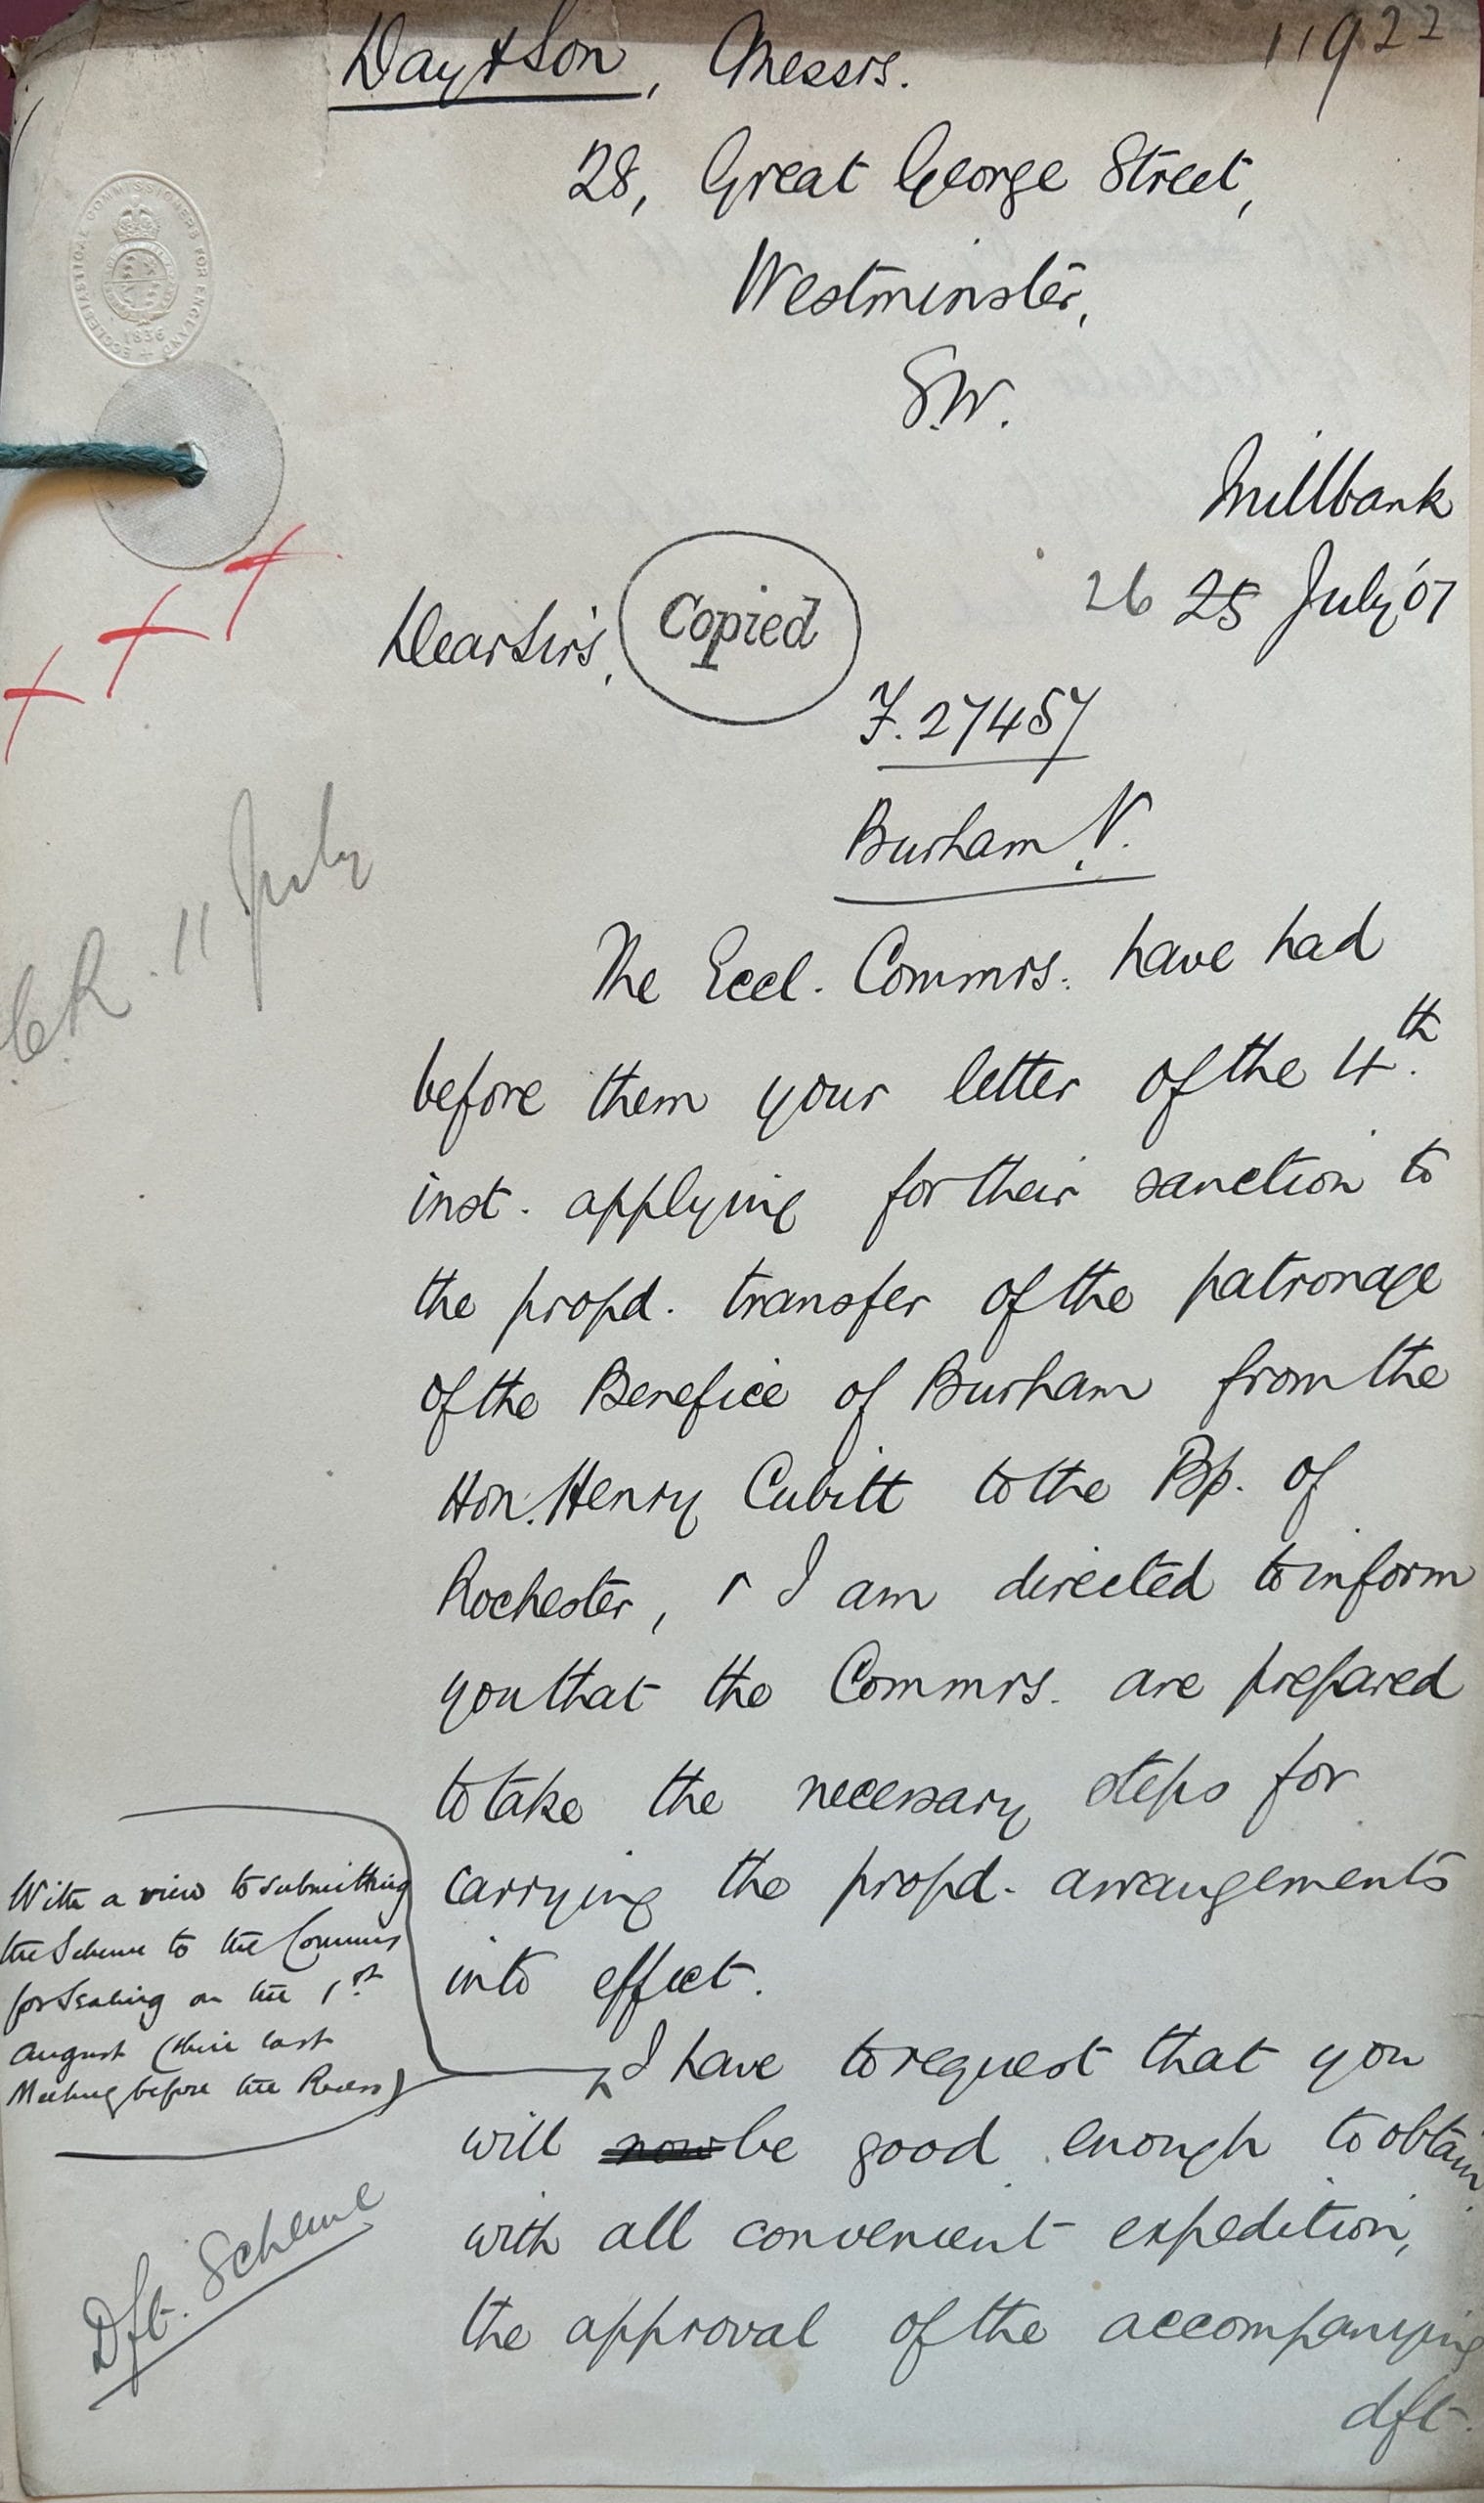 11922
Day & Son, Messrs.
28, Great George Street,
Westminster,
S.W.
ECCLESIASTICAL COMMISSIONERS FOR ENGLAND
1836
Millbank
26 25 July '07
Dear Sirs,
Copied
F. 27457
Burham V.
11 July
The Eccl. Commrs. have had
before them your letter of the 4th.
inst. applying for their sanction to
the propd. transfer of the patronage
of the Benefice of Burham from the
Hon. Henry Cubitt to the Bp. of
Rochester, & I am directed to inform
you that the Commrs. are prepared
to take the necessary steps for
carrying the propd. arrangements
into effect.
With a view to submitting
the Scheme to the Commrs
for Sealing on the 1st.
August (their last
Meeting before the Recess)
I have to request that you
will now be good enough to obtain
with all convenient expedition,
the approval of the accompanying
dft.
Dft. Scheme